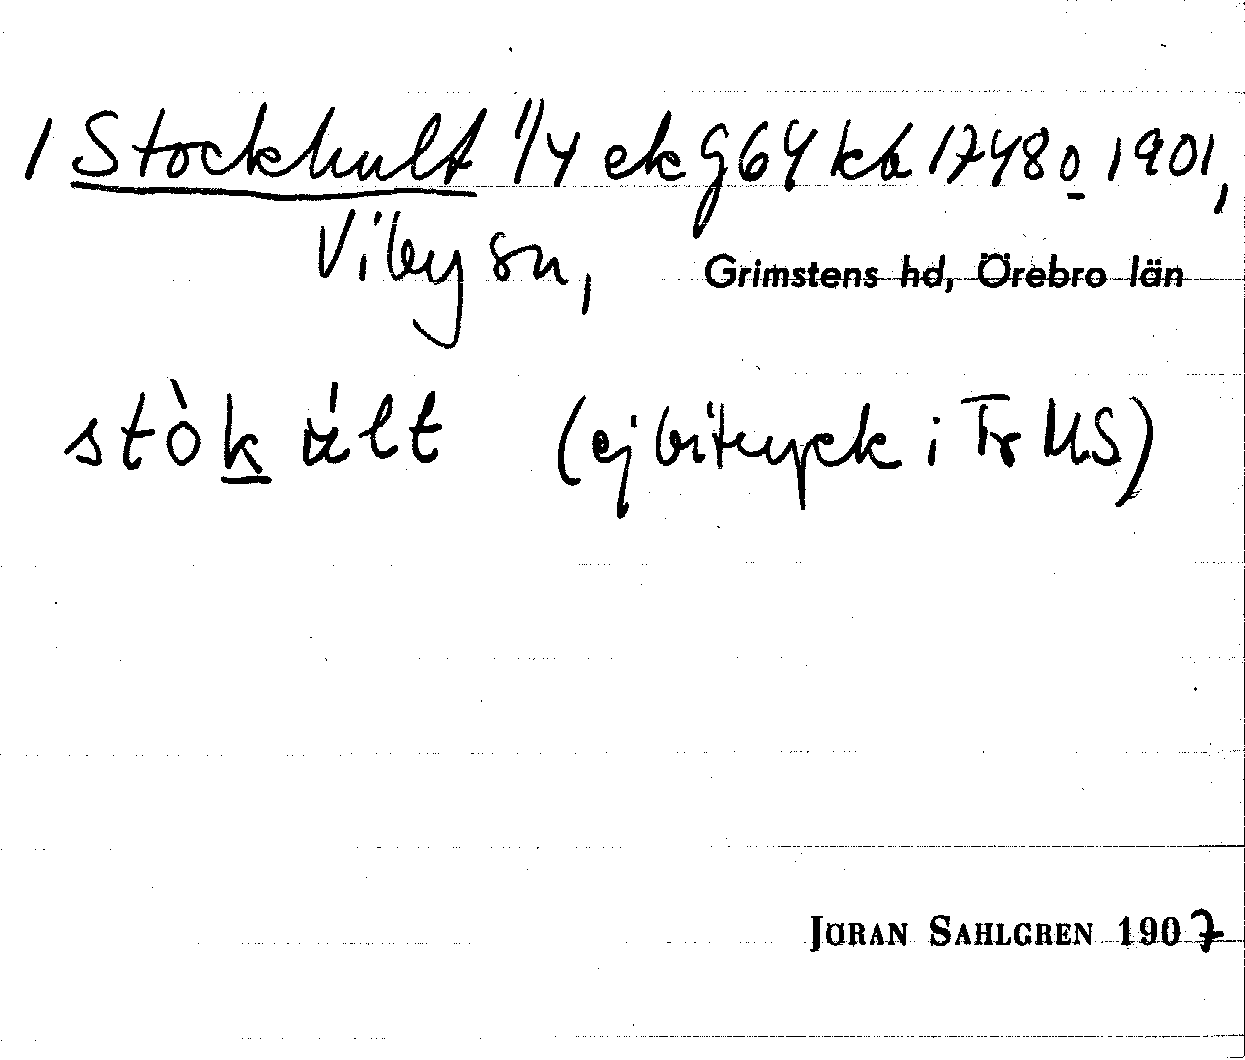 1 Stockhult 1/4 ek G64 kb 1748 o 1901,
Viby sn, Grimstens hd, Örebro län
stòk ùlt (ej bitryck i Fr MS)
JÖRAN SAHLGREN 1907